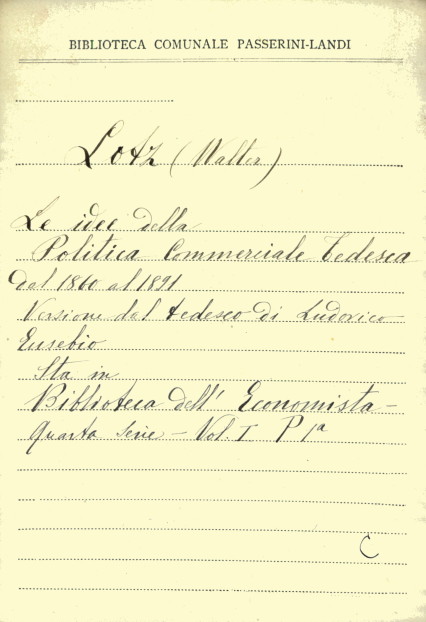 BIBLIOTECA COMUNALE PASSERINI-LANDI
Lotz (Walter)
Le idee della
Politica Commerciale Tedesca
dal 1860 al 1891
Versione dal tedesco di Ludovico
Eusebio
Sta in
Biblioteca dell' Economista -
Quarta Serie - Vol. I P 1ª
C